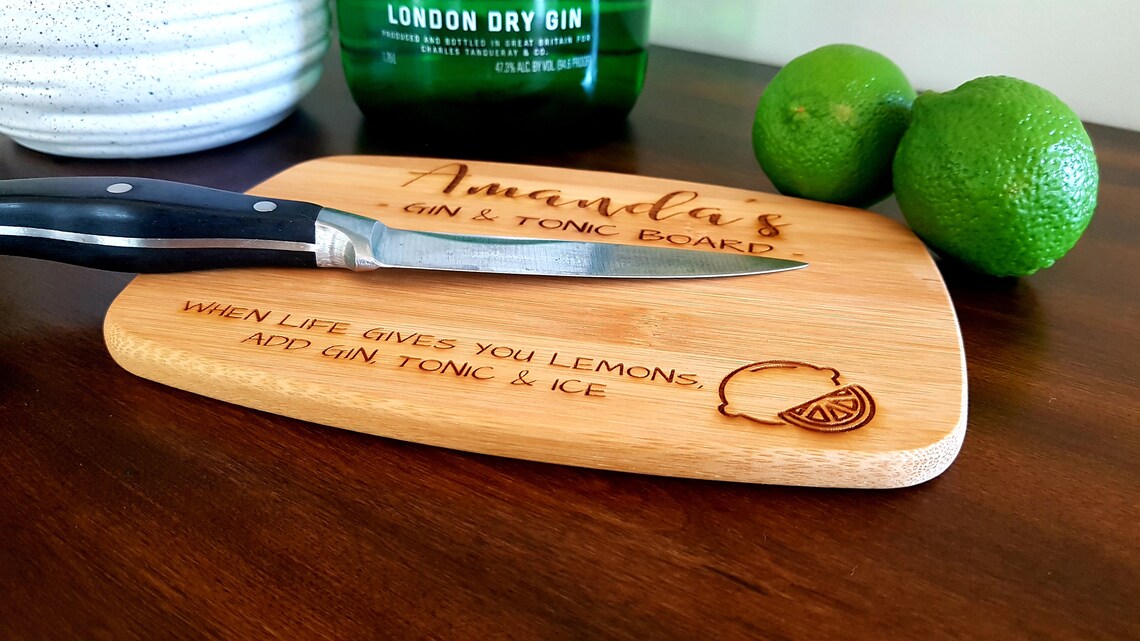 LONDON DRY GIN
PRODUCED AND BOTTLED IN GREAT BRITAIN FOR
CHARLES TANQUERAY & CO.
1.75L 47.3% ALC. BY VOL. (94.6 PROOF)
Amanda's
- GIN & TONIC BOARD -
WHEN LIFE GIVES YOU LEMONS,
ADD GIN, TONIC & ICE